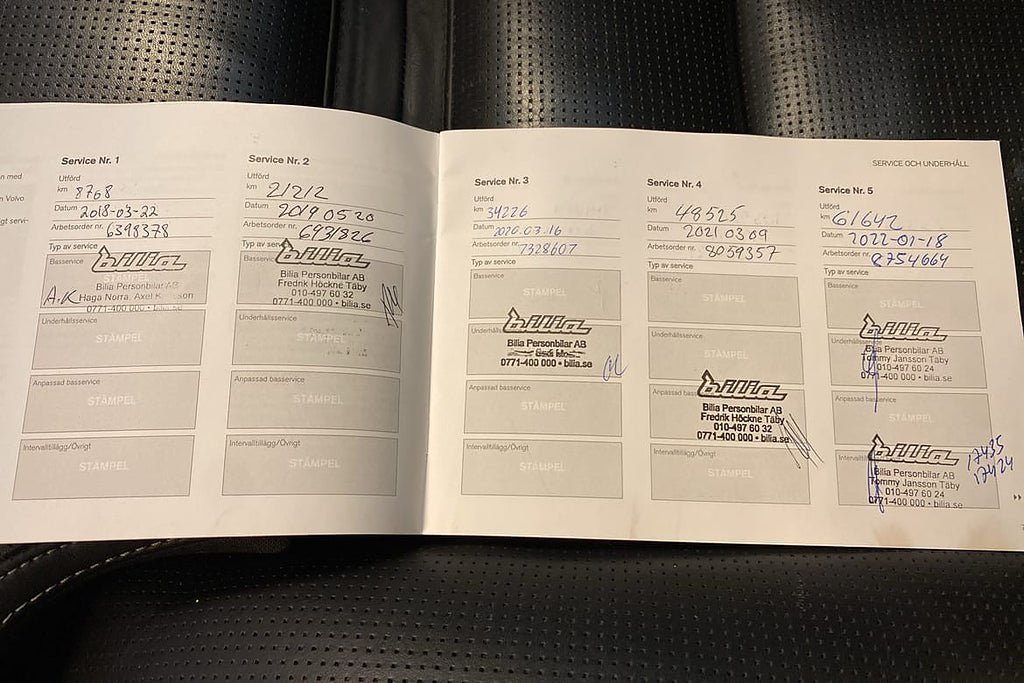 n med
n Volvo
igt servi-
Service Nr. 1
Utförd
km 8768
Datum 2018-03-22
Arbetsorder nr. 6398378
Typ av service
Basservice
bilia
Bilia Personbilar AB
A.K Haga Norra, Axel
0771-400 000 • bilia.se
Underhållsservice
STÄMPEL
Anpassad basservice
STÄMPEL
Intervalltillägg/Övrigt
STÄMPEL
Service Nr. 2
Utförd
km 21212
Datum 2019 05 20
Arbetsorder nr. 6931826
Typ av service
Basservice
bilia
Bilia Personbilar AB
Fredrik Höckne Täby
010-497 60 32
0771-400 000 • bilia.se
Underhållsservice
STÄMPEL
Anpassad basservice
STÄMPEL
Intervalltillägg/Övrigt
STÄMPEL
Service Nr. 3
Utförd
km 34226
Datum 2020.03.16
Arbetsorder nr 7328607
Typ av service
Basservice
STÄMPEL
Underhålls
bilia
Bilia Personbilar AB
0771-400 000 • bilia.se
Anpassad basservice
STÄMPEL
Intervalltillägg/Övrigt
STÄMPEL
Service Nr. 4
Utförd
km 48525
Datum 2021 03 09
Arbetsorder nr. 8059357
Typ av service
Basservice
STÄMPEL
Underhållsservice
STÄMPEL
Anpassad
bilia
Bilia Personbilar AB
Fredrik Höckne Täby
010-497 60 32
0771-400 000 • bilia.se
Intervalltillägg/Övrigt
STÄMPEL
SERVICE OCH UNDERHÅLL
Service Nr. 5
Utförd
km 61642
Datum 2022-01-18
Arbetsorder nr 8754664
Typ av service
Basservice
STÄMPEL
bilia
Underhållsservice
Bilia Personbilar AB
Tommy Jansson Täby
010-497 60 24
0771-400 000 • bilia.se
Anpassad basservice
STÄMPEL
bilia
Intervalltillägg
Bilia Personbilar AB
Tommy Jansson Täby
010-497 60 24
0771-400 000 • bilia.se
17435
17424